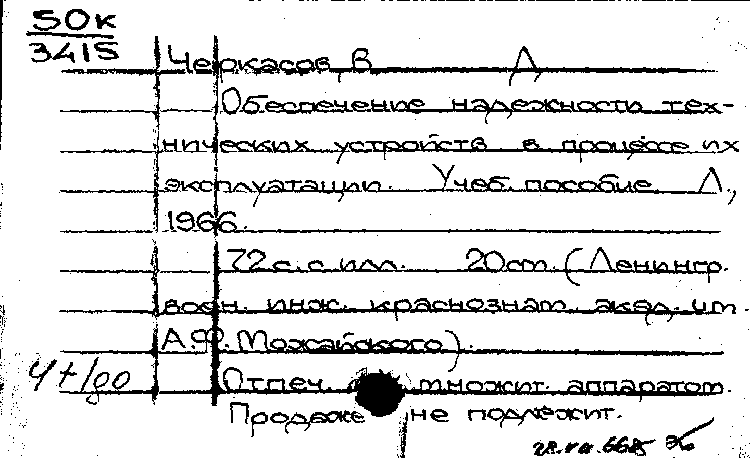 50к
3415
Черкасов, В Л
Обеспечение надежности тех-
нических устройств в процессе их
эксплуатации. Учеб. пособие Л.,
1966.
72 с. с илл. 20 см. (Ленингр.
воен. инж. краснознам. акад. им.
А.Ф. Можайского).
Отпеч. множит. аппаратом.
Продаже не подлежит.